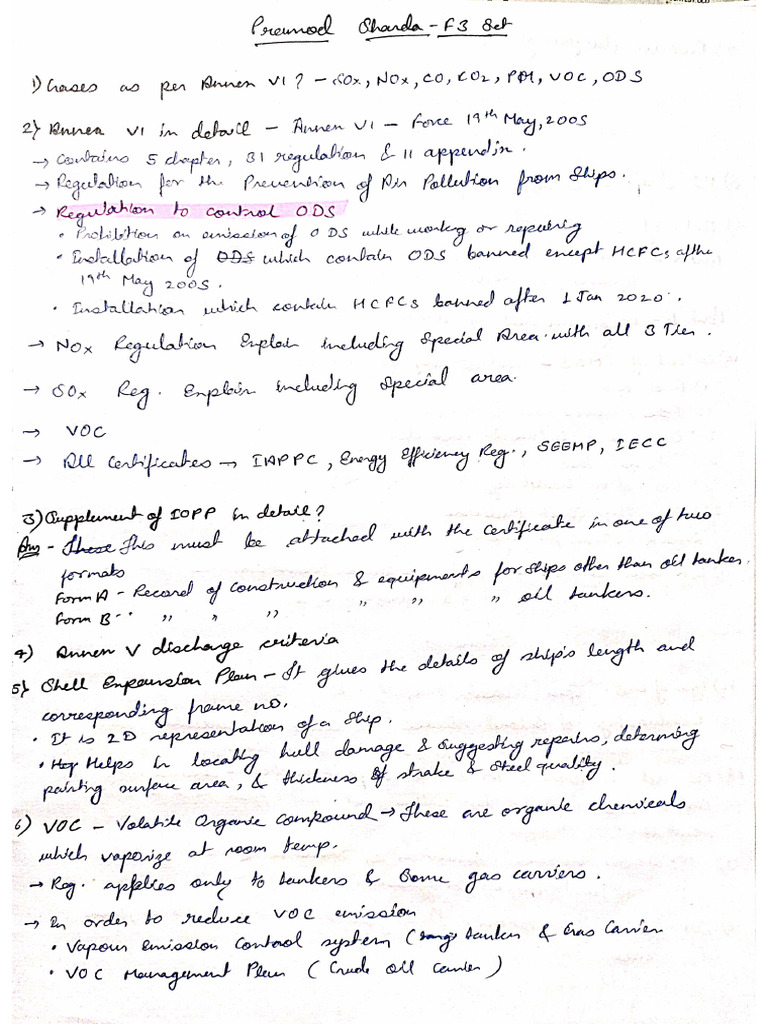 Pramod Sharda - F3 Set
1) Gases as per Annex VI? - SOx, NOx, CO, CO2, PM, VOC, ODS
2) Annex VI in detail - Annex VI - Force 19th May, 2005
→ Contains 5 chapter, 31 regulation & 11 appendix.
→ Regulation for the Prevention of Air Pollution from Ships.
→ Regulation to control ODS
• Prohibition on emission of ODS while working or repairing
• Installation of ODS which contain ODS banned except HCFCs after
19th May 2005.
• Installation which contain HCFCs banned after 1 Jan 2020.
→ NOx Regulation Explain including Special Area with all 3 Tier.
→ SOx Reg. Explain including special area.
→ VOC
→ All Certificates → IAPPC, Energy Efficiency Reg., SEEMP, IECC
3) Supplement of IOPP in detail?
Ans - These This must be attached with the certificate in one of two
formats
Form A - Record of construction & equipments for ships other than oil tanker.
Form B - " " " " " " oil tankers.
4) Annex V discharge criteria
5) Shell Expansion Plan - It gives the details of ship's length and
corresponding frame no.
• It is 2D representation of a ship.
• Hep Helps in locating hull damage & suggesting repairs, determing
painting surface area, & thickness of strake & steel quality.
6) VOC - Volatile Organic Compound → These are organic chemicals
which vaporize at room temp.
→ Reg. applies only to tankers & Some gas carriers.
→ In order to reduce VOC emission
• Vapour Emission Control system ( tanker & Gas Carrier
• VOC Management Plan ( Crude oil carrier )